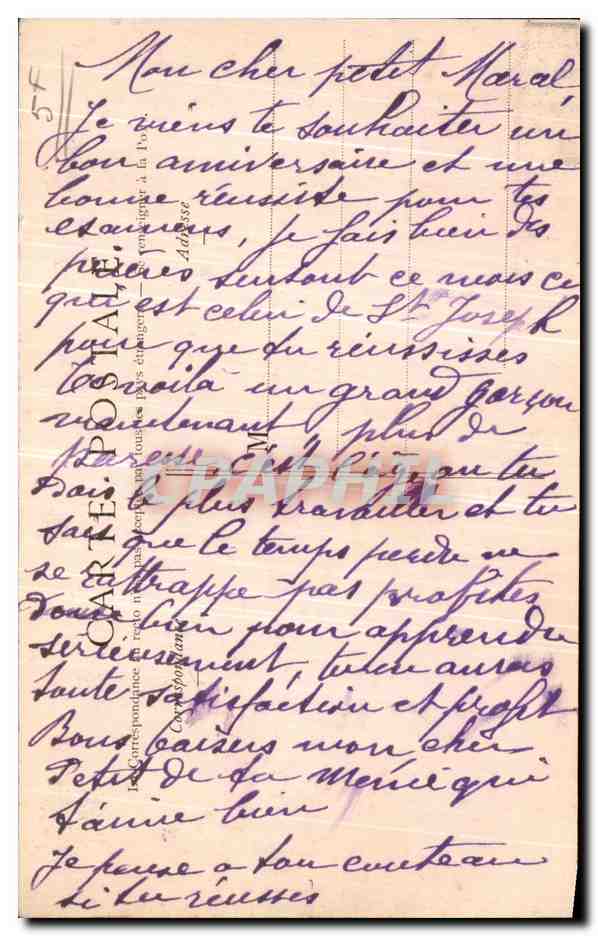 5F
Mon cher petit Marcel,
Je viens te souhaiter un
bon anniversaire et une
bonne réussite pour tes
examens, je fais bien des
prières surtout ce mois ci
qui est celui de St Joseph
pour que tu réussisses
te voilà un grand garçon
maintenant plus de
paresse c'est l'âge ou tu
dois le plus travailler et tu
sais que le temps perdu ne
se attrappe pas profites
donc bien pour apprendre
serieusement, tu en auras
toute satisfaction et profit
Bons baisers mon cher
Petit de ta Mémé qui
t'aime bien
Je pense a ton couteau
si tu réusses
CARTE POSTALE
Correspondance
Adresse
M
CPAPHIL